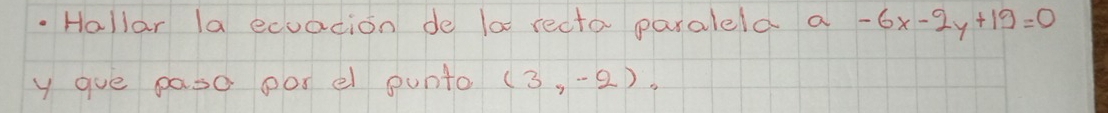 • Hallar la ecuación de la recta paralela a -6x-2y+19=0
y que pasa por el punto (3,-2).